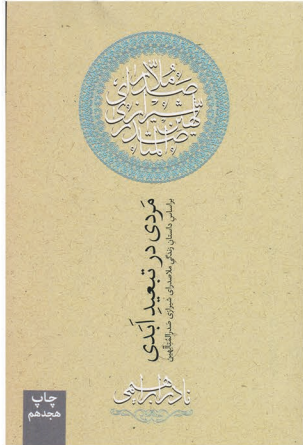 ملا صدرای شیرازی صدرالمتألهین
مَردی در تبعیدِ اَبَدی
براساسِ داستانِ زندگیِ ملاصدرای شیرازی صدرالمتألهین
نادر ابراهیمی
چاپ
هجدهم